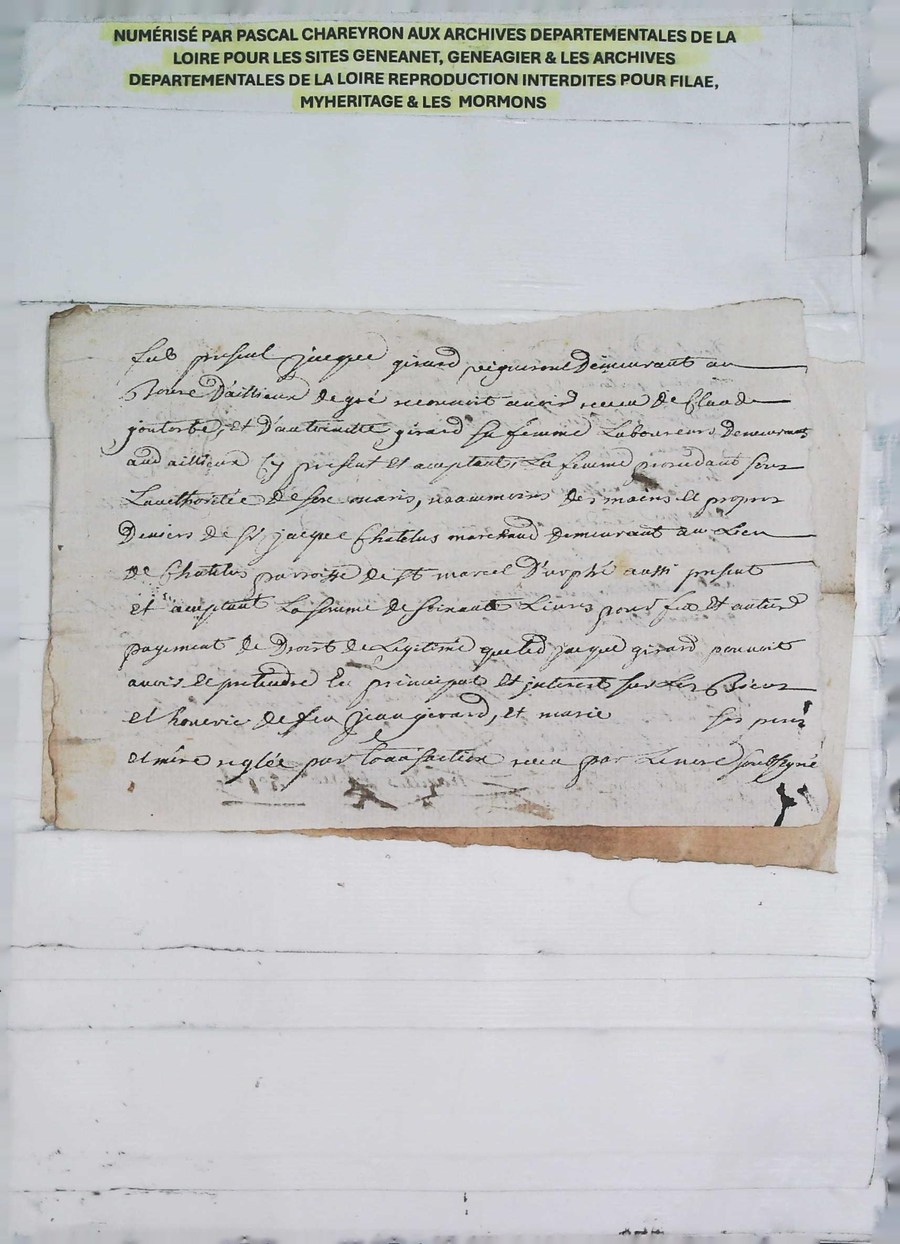 NUMÉRISÉ PAR PASCAL CHAREYRON AUX ARCHIVES DEPARTEMENTALES DE LA
LOIRE POUR LES SITES GENEANET, GENEAGIER & LES ARCHIVES
DEPARTEMENTALES DE LA LOIRE REPRODUCTION INTERDITES POUR FILAE,
MYHERITAGE & LES MORMONS
fut present jacque girard vigniron Demeurant au
Bourg D'aillieux de gré reconnoit avoir receu de Claude
gontorbe, et D'antoinette girard sa femme Laboureurs Demeurants
aud aillieux cy present et aceptants, La femme procedant sous
L'authoritée de son maris, neammoins des mains et propres
Deniers de Sr jacque Chatelus marchand demeurant au Lieu
de Chatelus parroisse de st marcel D'urphé aussi present
et aceptant La somme de soixante Livres pour fin et entier
payement de Droit de Legitime que led jacque girard pouvoit
avoir et pretendre En principal et interest sur Les Biens
et hoierie de feu jean girard, et marie ses pere
et mère reglée par transaction receu par Le nore soussigné